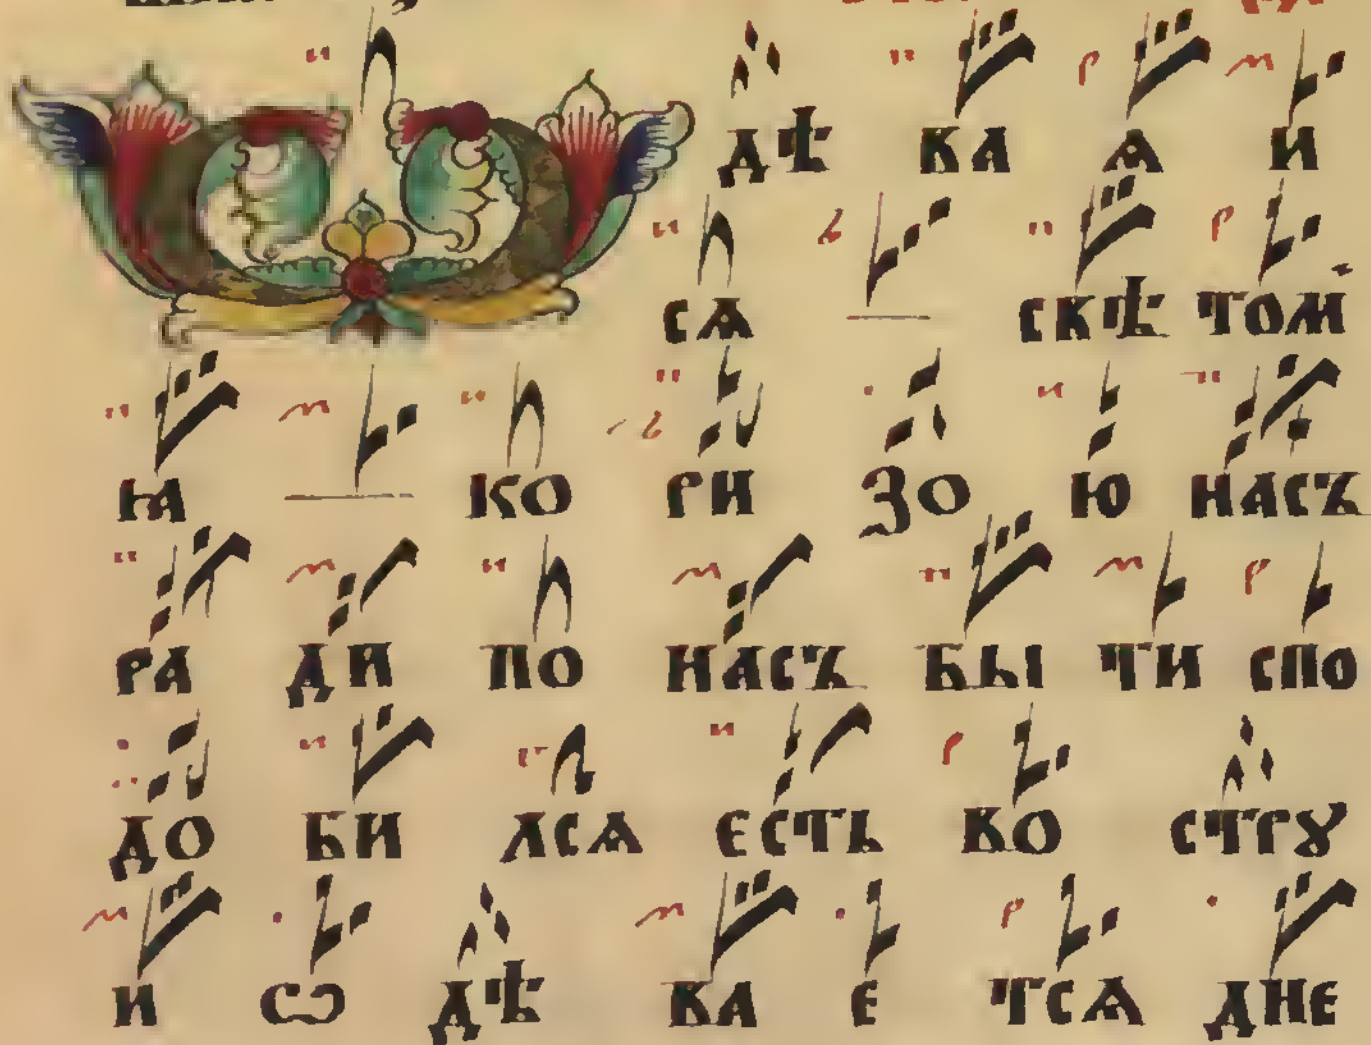 дѣ ва ѧ и
сѧ свѣ том
ꙗ ко ри зо ю насъ
ра ди по насъ бы ти спо
до би лсѧ єсть во стрꙋ
и ѡ дѣ ва є тсѧ дне